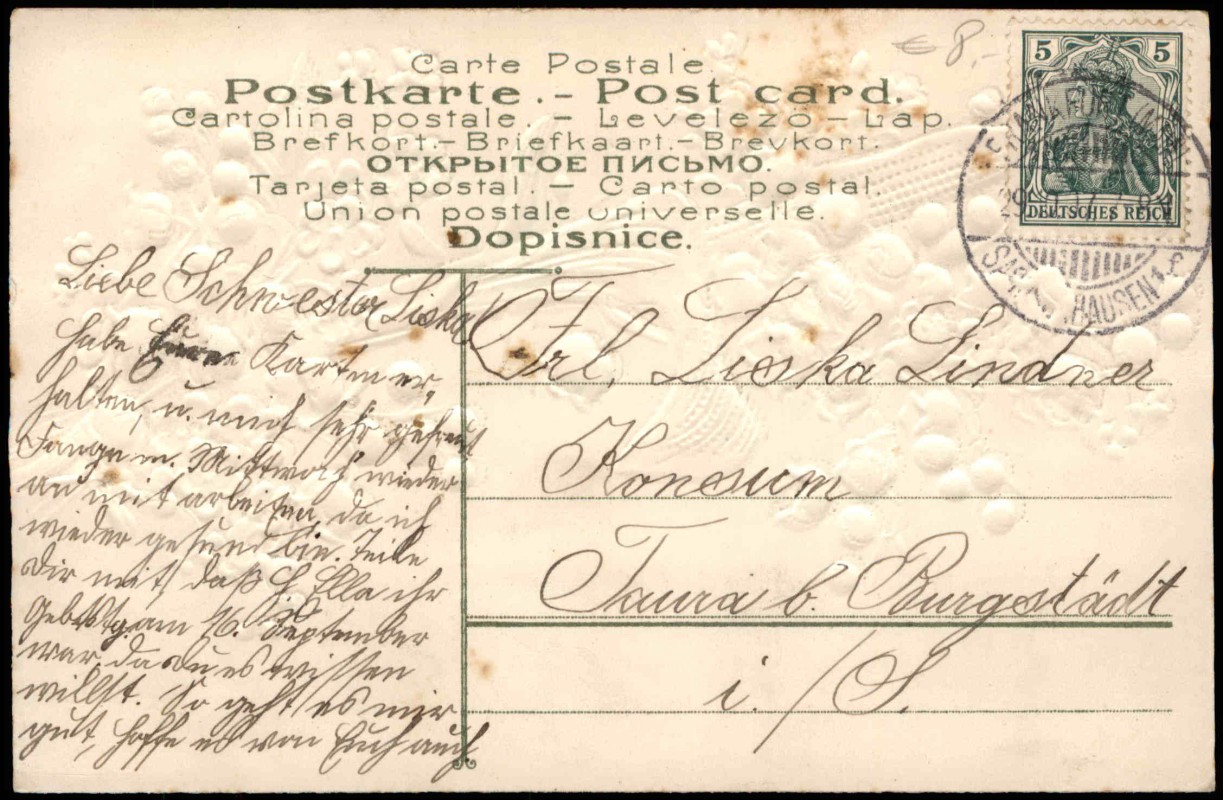 € 8,-
Carte Postale.
Postkarte. – Post card.
Cartolina postale. – Levelezo – Lap.
Brefkort. – Briefkaart. – Brevkort.
ОТКРЫТОЕ ПИСЬМО.
Tarjeta postal. – Carto postal.
Union postale universelle.
Dopisnice.
5 5
DEUTSCHES REICH
HAUSEN
Liebe Schwester Liska
habe Eure Karten er-
halten, u. mich sehr gefreut
Fange m. Mittwoch wieder
an mit arbeiten, da ich
wieder gesund bin. Teile
Dir mit, daß Ella ihr
Gebtstg. am 16. September
war, da Du es wissen
willst. So geht es mir
gut, hoffe es von Euch auch
Frl. Liska Lindner
Konsum
Taura b. Burgstädt
i./S.